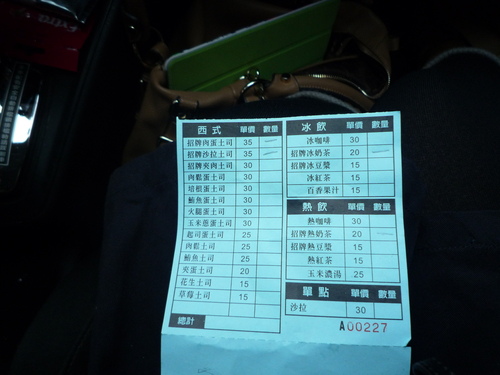 Extra
西式 單價 數量
招牌肉蛋土司 35
招牌沙拉土司 35
招牌夾肉土司 30
肉鬆蛋土司 30
培根蛋土司 30
鮪魚蛋土司 30
火腿蛋土司 30
玉米蔥蛋土司 30
起司蛋土司 25
肉鬆土司 25
鮪魚土司 25
夾蛋土司 20
花生土司 15
草莓土司 15
總計
冰飲 單價 數量
冰咖啡 30
招牌冰奶茶 20
招牌冰豆漿 15
冰紅茶 15
百香果汁 15
熱飲 單價 數量
熱咖啡 30
招牌熱奶茶 20
招牌熱豆漿 15
熱紅茶 15
玉米濃湯 25
單點 單價 數量
沙拉 30
A00227